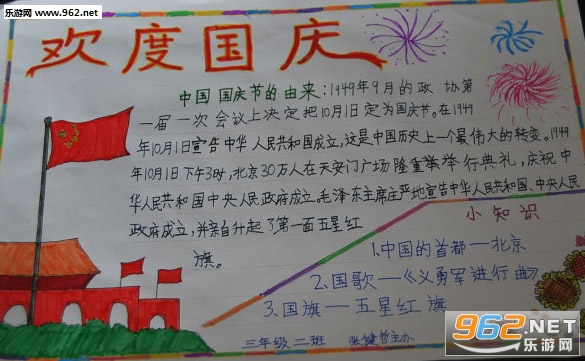 乐游网
www.962.net
欢度国庆
中国国庆节的由来：1949年9月的政协第
一届一次会议上决定把10月1日定为国庆节。在1949
年10月1日宣告中华人民共和国成立，这是中国历史上一个最伟大的转变。1949
年10月1日下午3时，北京30万人在天安门广场隆重举举行典礼，庆祝中
华人民共和国中央人民政府成立。毛泽东主席庄严地宣告中华人民共和国、中央人民
政府成立，并亲自升起了第一面五星红
旗。
小知识
1.中国的首都—北京
2.国歌—《义勇军进行曲》
3.国旗—五星红旗
三年级二班 张健哲主办
962.NET
乐游网